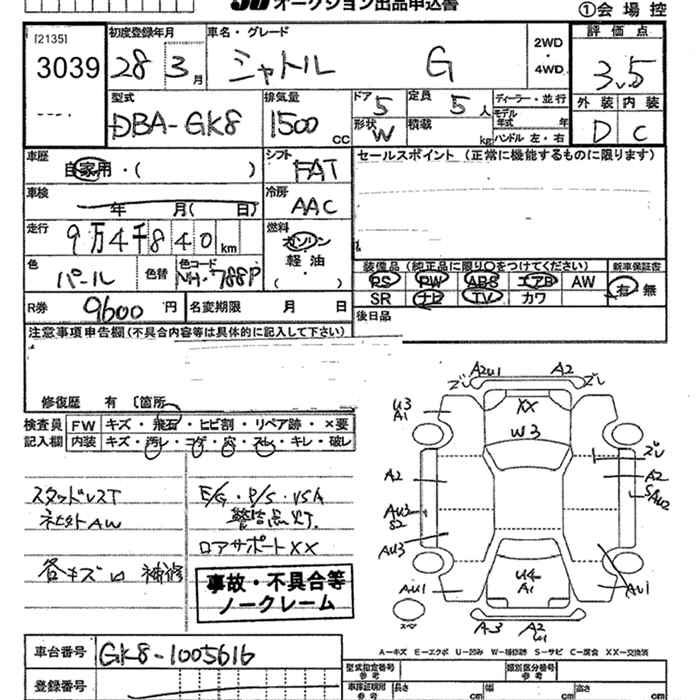 オークション出品申込書
①会場控
[2135]
3039
初度登録年月
28 3月
車名・グレード
シャトル G
2WD
・
4WD
評価点
3.5
外装 内装
D C
型式
DBA-GK8
排気量
1500 CC
ドア 5
定員 5 人
形状 W
積載 kg
ディーラー・並行
モデル年式 年
ハンドル 左・右
車歴
自家用・( )
シフト
FAT
セールスポイント (正常に機能するものに限ります)
車検
年 月( 日)
冷房
AAC
走行
9万4千840 km
燃料
ガソリン
軽油
・( )
色
パール
色替
色コード
NH-788P
装備品(純正品に限り○をつけてください)
新車保証書
PS PW ABS エアB AW
SR ナビ TV カワ
有・無
R券
9600 円
名変期限 月 日
後日品
注意事項申告欄(不具合内容等は具体的に記入して下さい)
修復歴 有 〔箇所
検査員記入欄
FW キズ・飛石・ヒビ割・リペア跡・×要
内装 キズ・汚レ・コゲ・穴・スレ・キレ・破レ
スタッドレスT
ネビ外AW
各キズ凹 補修
E/G・P/S・VSA
警告点灯
ロアサポートXX
事故・不具合等
ノークレーム
A2U1 A2
U3
A1
XX
W3
A2
A2
AU3
S2
S
AU2
AU3
U4
A1
AU1
AU1
スペア
A3 A2
U1
A-キズ E-エクボ U-凹み W-補修跡 S-サビ C-腐食 XX-交換済
車台番号
GK8-1005616
登録番号
型式指定番号
参考
類別区分番号
参考
車庫証明用
参考
長さ cm
幅 cm
高さ cm